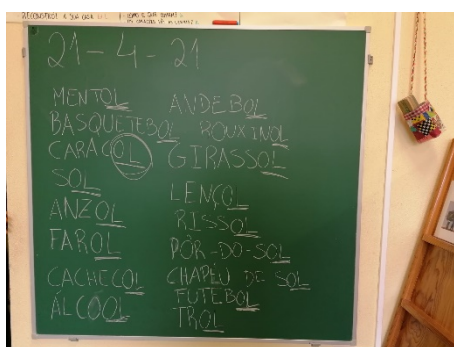 21-4-21
MENTOL
BASQUETEBOL
CARACOL
SOL
ANZOL
FAROL
CACHECOL
ÁLCOOL
ANDEBOL
ROUXINOL
GIRASSOL
LENÇOL
RISSOL
PÔR-DO-SOL
CHAPÉU DE SOL
FUTEBOL
TROL